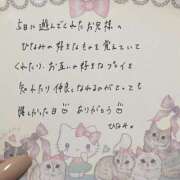 5日に遊んでくれたお客様の
ひなみの好きなものを覚えていて
くれたり、お互いの好きなプレイを
知れたり仲良くなれるのがとっても
嬉しかった日 ありがとう
ひなみ